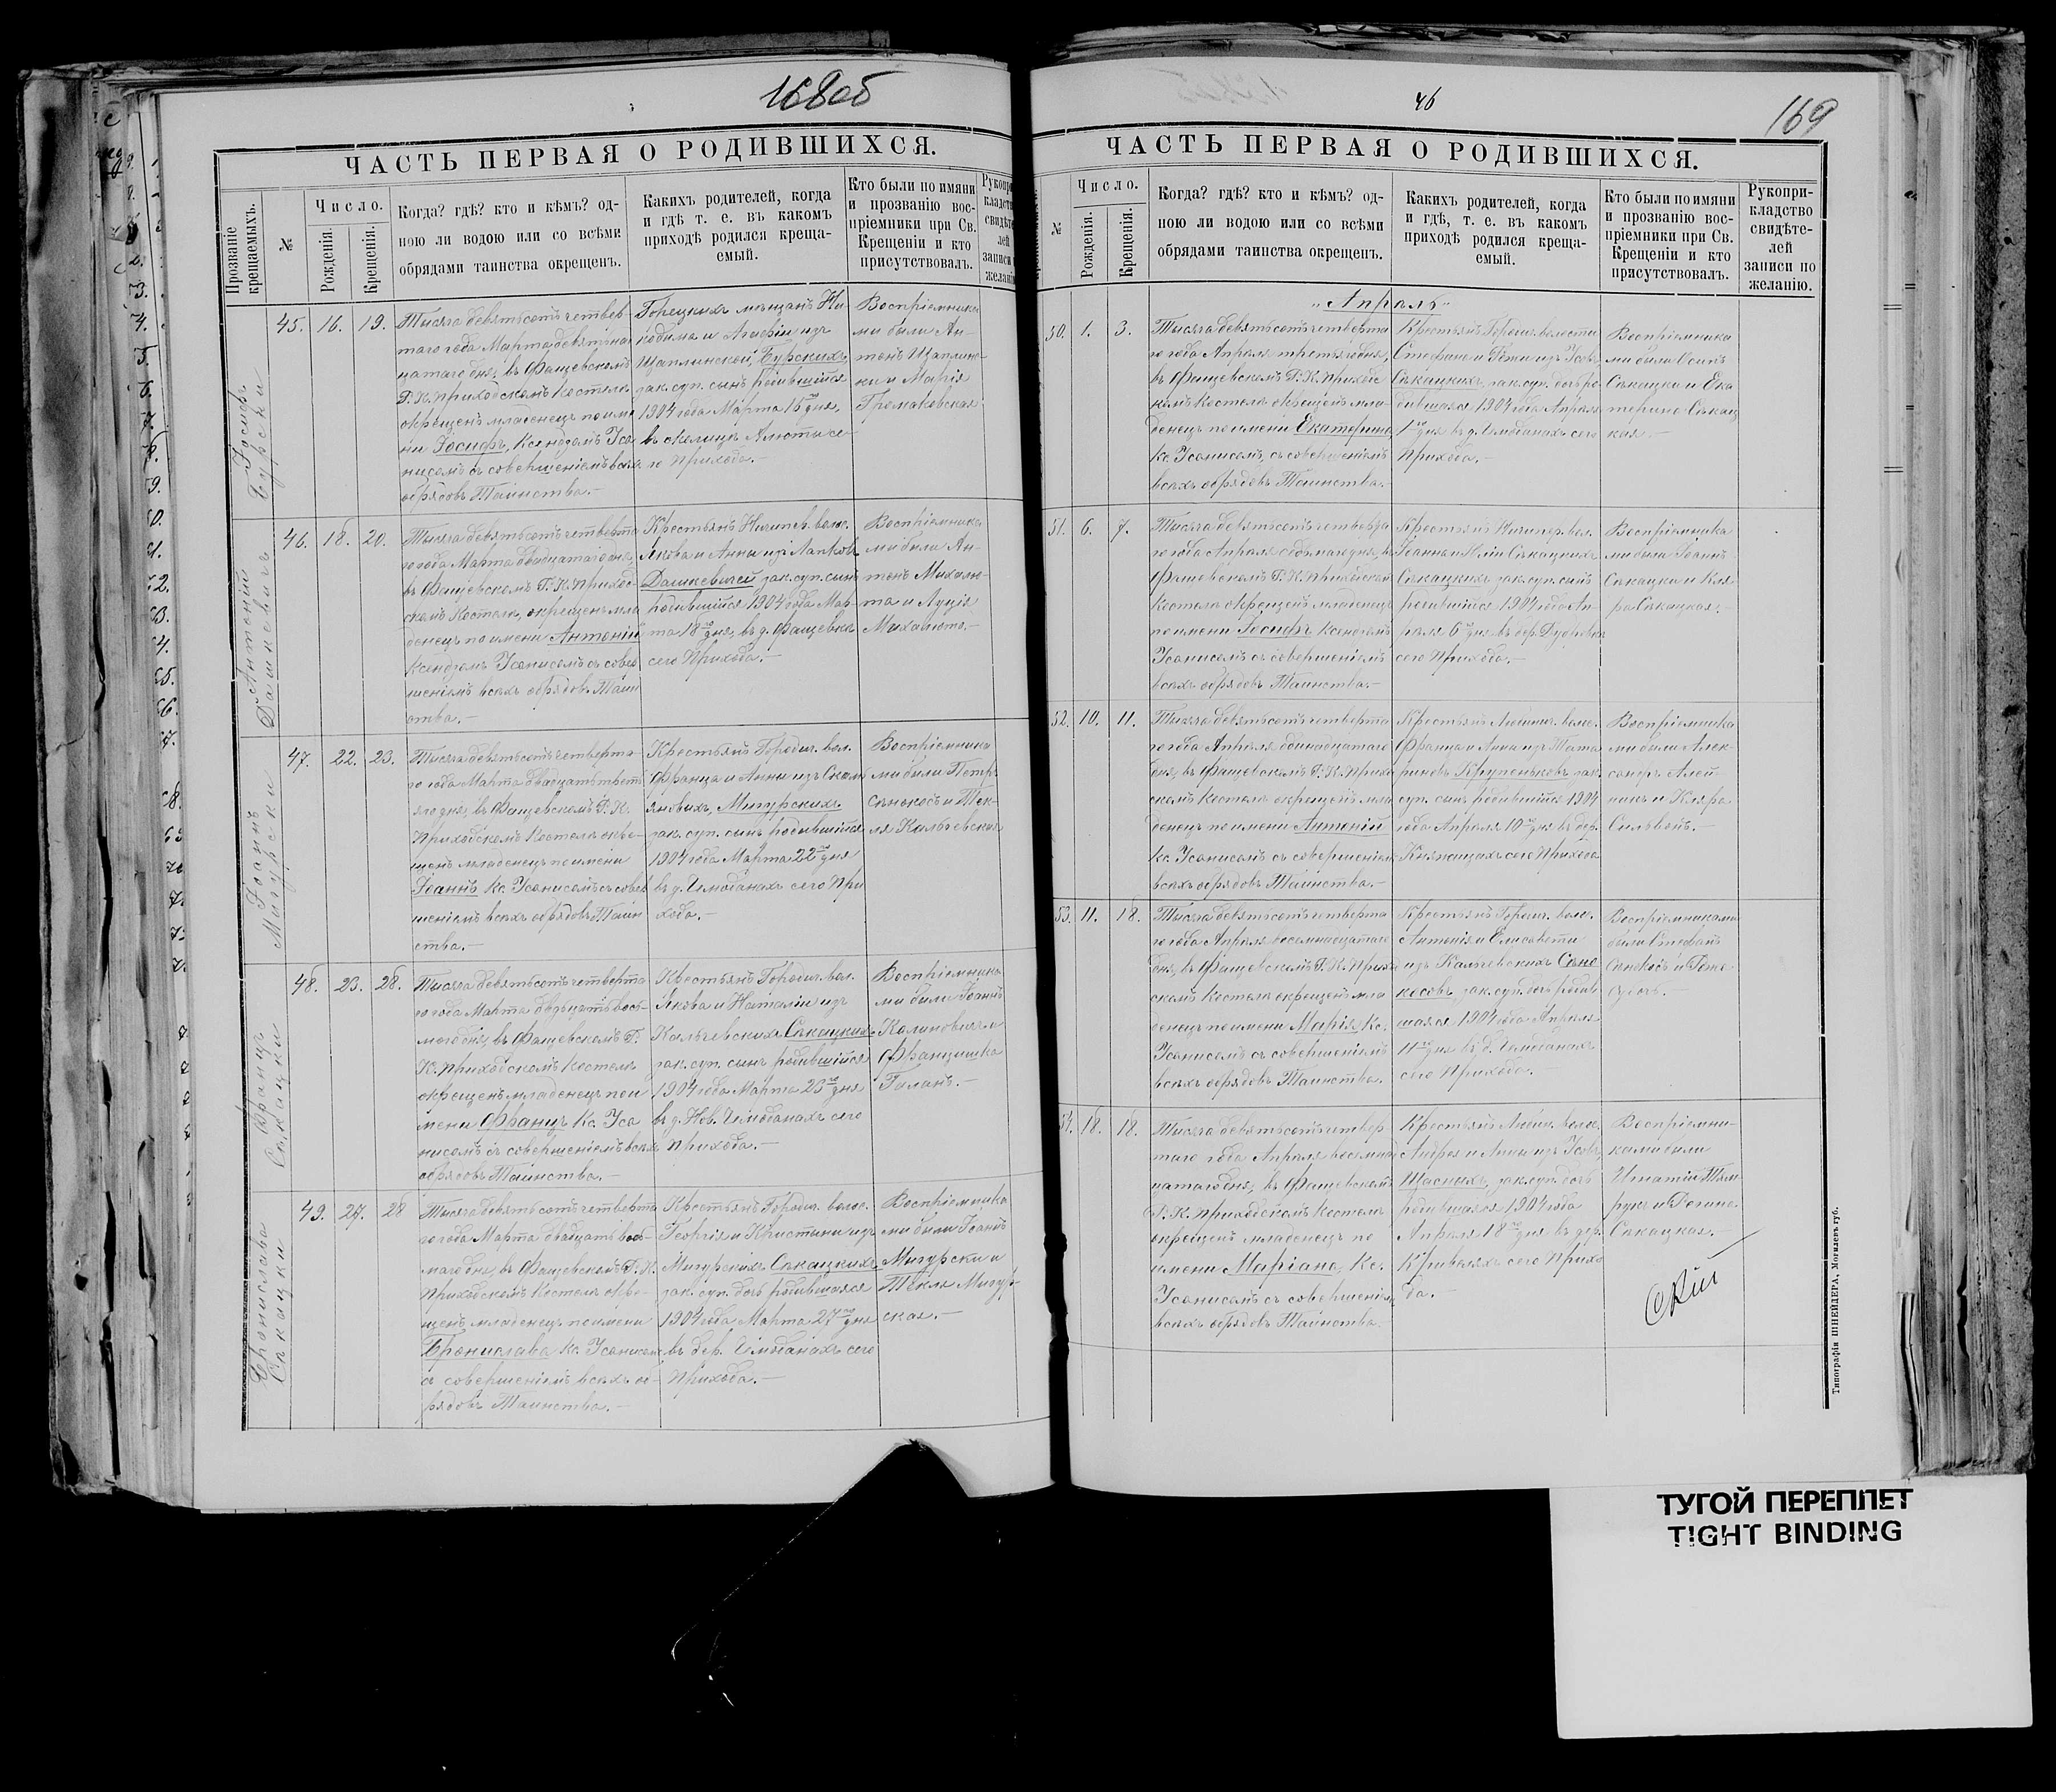 168об
ЧАСТЬ ПЕРВАЯ О РОДИВШИХСЯ.
Прозваніе крещаемыхъ.
№
Число.
Рожденія.
Крещенія.
Когда? гдѣ? кто и кѣмъ? од-
ною ли водою или со всѣми
обрядами таинства окрещенъ.
Какихъ родителей, когда
и гдѣ т. е. въ какомъ
приходѣ родился креща-
емый.
Кто были по имяни
и прозванію вос-
пріемники при Св.
Крещеніи и кто
присутствовалъ.
Іосифъ
Бурски
45. 16. 19.
Тысяча девятьсотъ четвер-
таго года Марта девятна
цатаго дня, въ Фащевскомъ
Р. К. приходскомъ костелѣ
окрещенъ младенецъ по име
ни Іосифъ, Ксендзомъ Уса
нисомъ съ совершеніемъ всѣхъ
обрядовъ Таинства.-
Горецкихъ мѣщанъ Ни-
кодима и Агафіи изъ
Щаплинской, Бурскихъ,
зак. суп. сынъ родившійся
1904 года Марта 16го дня,
въ околицѣ Алюты се-
го Прихода.-
Воспріемника
ми были Ан-
тонъ Щаплин-
ски и Марія
Громаковская
Антоній
Дашкевичъ
46. 18. 20.
Тысяча девятьсотъ четверта
го года Марта двадцатаго дня,
въ Фащевскомъ Р. К. приход-
скомъ костелѣ, окрещенъ мла
денецъ по имени Антоній
Ксендзомъ Усанисомъ съ совер
шеніемъ всѣхъ обрядовъ Таин
ства.-
Крестьянъ Ничипор. волос.
Якова и Анны изъ Лапков
Дашкевичей зак. суп. сынъ
родившійся 1904 года Мар-
та 18го дня, въ д. Фащевкѣ
сего Прихода.-
Воспріемника
ми были Ан-
тонъ Михалю-
та и Луція
Михалюта.-
Іоаннъ
Мигурски
47. 22. 23.
Тысяча девятьсотъ четверта-
го года Марта двадцать треть
яго дня, въ Фащевскомъ Р. К.
Приходскомъ Костелѣ окре-
щенъ младенецъ по имени
Іоаннъ Кс. Усанисомъ съ совер
шеніемъ всѣхъ обрядовъ Таин
ства.-
Крестьянъ Городищ. вол.
Франца и Анны изъ
Мигурскихъ
зак. суп. сынъ родившійся
1904 года Марта 22го дня
въ д. сего При
хода.-
Воспріемника
ми были Петръ
Сѣнокосъ и Тек-
ля Кальчевская
Францъ
Сѣкацки
48. 23. 28.
Тысяча девятьсотъ четверта
го года Марта двадцать вось-
маго дня, въ Фащевскомъ Р.
К. приходскомъ костелѣ
окрещенъ младенецъ по и
мени Францъ Кс. Уса
нисомъ съ совершеніемъ всѣхъ
обрядовъ Таинства.-
Крестьянъ Городищ. вол.
Якова и Наталіи изъ
Кальчевскихъ Сѣкацкихъ
зак. суп. сынъ родившійся
1904 года Марта 23го дня
въ д. Нов. сего
прихода.-
Воспріемника
ми были Іоаннъ
Калиновскій и
Францишка
Галанъ.-
Бронислава
Сѣкацки
49. 27. 28
Тысяча девятьсотъ четверта
го года Марта двадцать вось-
маго дня, въ Фащевскомъ Р. К.
приходскомъ костелѣ окре-
щенъ младенецъ по имени
Бронислава кс. Усанисом
съ совершеніемъ всѣхъ об-
рядовъ Таинства.-
Крестьянъ Городищ. волос.
Георгія и Кристины изъ
Мигурскихъ Сѣкацкихъ
зак. суп. дочь родившаяся
1904 года Марта 27го дня
въ дер. сего
Прихода.-
Воспріемника
ми были Іоаннъ
Мигурски и
Текля Мигур-
ская.-
46
169
ЧАСТЬ ПЕРВАЯ О РОДИВШИХСЯ.
№
Число.
Рожденія.
Крещенія.
Когда? гдѣ? кто и кѣмъ? од-
ною ли водою или со всѣми
обрядами таинства окрещенъ.
Какихъ родителей, когда
и гдѣ, т. е. въ какомъ
приходѣ родился креща-
емый.
Кто были по имяни
и прозванію вос-
пріемники при Св.
Крещеніи и кто
присутствовалъ.
Рукопри-
кладство
свидѣте-
лей
записи по
желанію.
„Апрѣль“
50. 1. 3.
Тысяча девятьсотъ четверта
го года Апрѣля третьяго дня,
въ Фащевскомъ Р. К. приход
скомъ костелѣ окрещенъ мла-
денецъ по имени Екатерина,
кс. Усанисомъ, съ совершеніемъ
всѣхъ обрядовъ Таинства.-
Крестьянъ Городищ. волости
Стефана и
Сѣкацкихъ, зак. суп. дочь ро-
дившаяся 1904 года Апрѣля
1го дня въ д. сего
Прихода.-
Воспріемника
ми были Осипъ
Сѣкацки и Ека
терина Сѣкац
кая.-
51. 6. 7.
Тысяча девятьсотъ четверта
го года Апрѣля седьмаго дня, въ
Фащевскомъ Р. К. Приходском
костелѣ окрещенъ младенецъ
по имени Іосифъ ксендзомъ
Усанисомъ съ совершеніемъ
всѣхъ обрядовъ Таинства.-
Крестьянъ Ничипор. вол.
Іоанна и Юліи Сѣкацкихъ
Сѣкацкихъ зак. суп. сынъ
родившійся 1904 года Ап-
рѣля 6го дня въ дер. Дубровкѣ
сего Прихода.-
Воспріемника
ми были Іоаннъ
Сѣкацки и Кля
ра Сѣкацкая.-
52. 10. 11.
Тысяча девятьсотъ четверта
го года Апрѣля одинадцатаго
дня, въ Фащевскомъ Р. К. прихо
скомъ костелѣ окрещенъ мла
денецъ по имени Антоній
кс. Усанисомъ съ совершеніем
всѣхъ обрядовъ Таинства.-
Крестьянъ волос.
Франца и Анны изъ Тата
риновъ Крупеньковъ зак.
суп. сынъ родившійся 1904
года Апрѣля 10го дня въ дер.
Княжицахъ сего Прихода
Воспріемника
ми были Алек-
сандръ Алей-
никъ и Клара
Сильванъ.-
53. 11. 18.
Тысяча девятьсотъ четверта
го года Апрѣля восемнадцатаго
дня, въ Фащевскомъ Р. К. Прихо
скомъ костелѣ окрещенъ мла
денецъ по имени Марія, Кс.
Усанисомъ съ совершеніемъ
всѣхъ обрядовъ Таинства.
Крестьянъ Городищ. волос.
Антонія и Елисаветы
изъ Кальчевскихъ Сѣно
косовъ, зак. суп. дочь родив-
шаяся 1904 года Апрѣля
11го дня въ д.
сего Прихода.-
Воспріемниками
были Стефанъ
Сѣнокосъ и
54. 18. 18.
Тысяча девятьсотъ четвер
таго года Апрѣля восемнад
цатаго дня, въ Фащевскомъ
Р. К. Приходскомъ костелѣ
окрещенъ младенецъ по
имени Маріана, Кс.
Усанисомъ съ совершеніем
всѣхъ обрядовъ Таинства.
Крестьянъ волос.
Андрея и Анны изъ
Щасныхъ, зак. суп. дочь
родившаяся 1904 года
Апрѣля 18го дня въ дер.
сего Прихо
да.-
Воспріемни-
ками были
Игнатій
и
Сѣкацкая.-
Типографія ШНЕЙДЕРА, Могилевъ губ.
ТУГОЙ ПЕРЕПЛЕТ
TIGHT BINDING